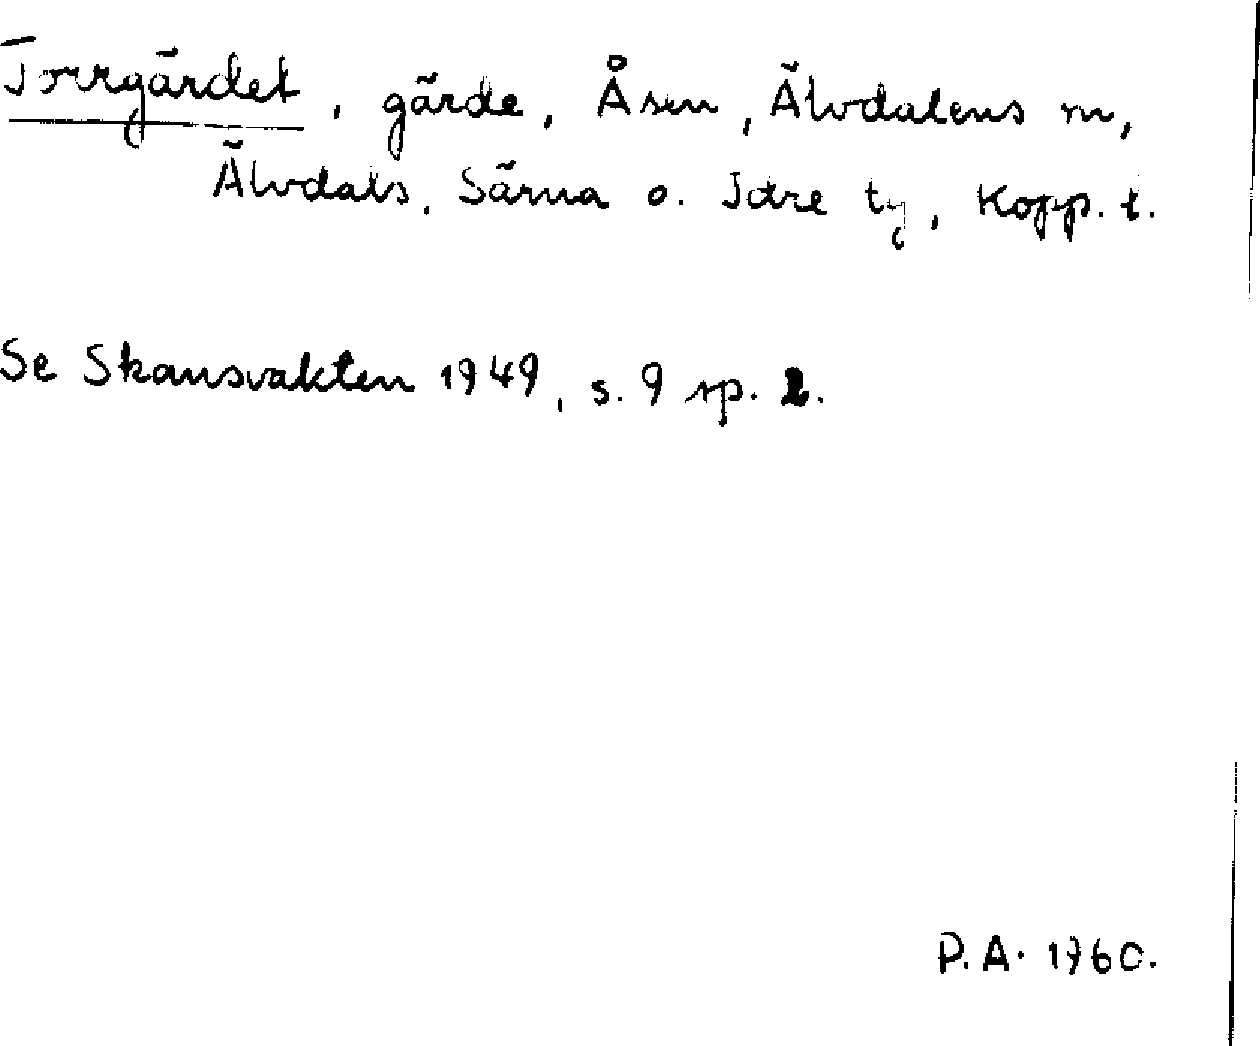 Torrgärdet, gärde, Åsen, Älvdalens sn,
Älvdals, Särna o. Idre tg, Kopp. l.
Se Skansvakten 1949, s. 9 sp. 2.
P.A. 1960.